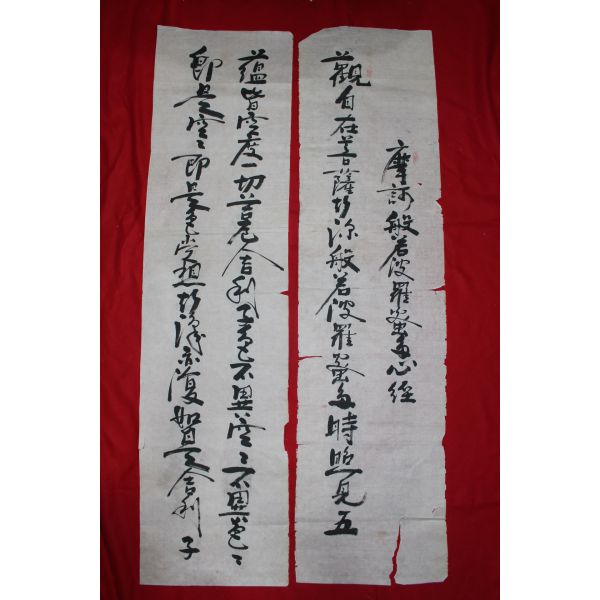 摩訶般若波羅蜜多心經
觀自在菩薩行深般若波羅蜜多時照見五
蘊皆空度一切苦厄舍利子色不異空々不異色々
卽是空々卽是色受想行識亦復如是舍利子